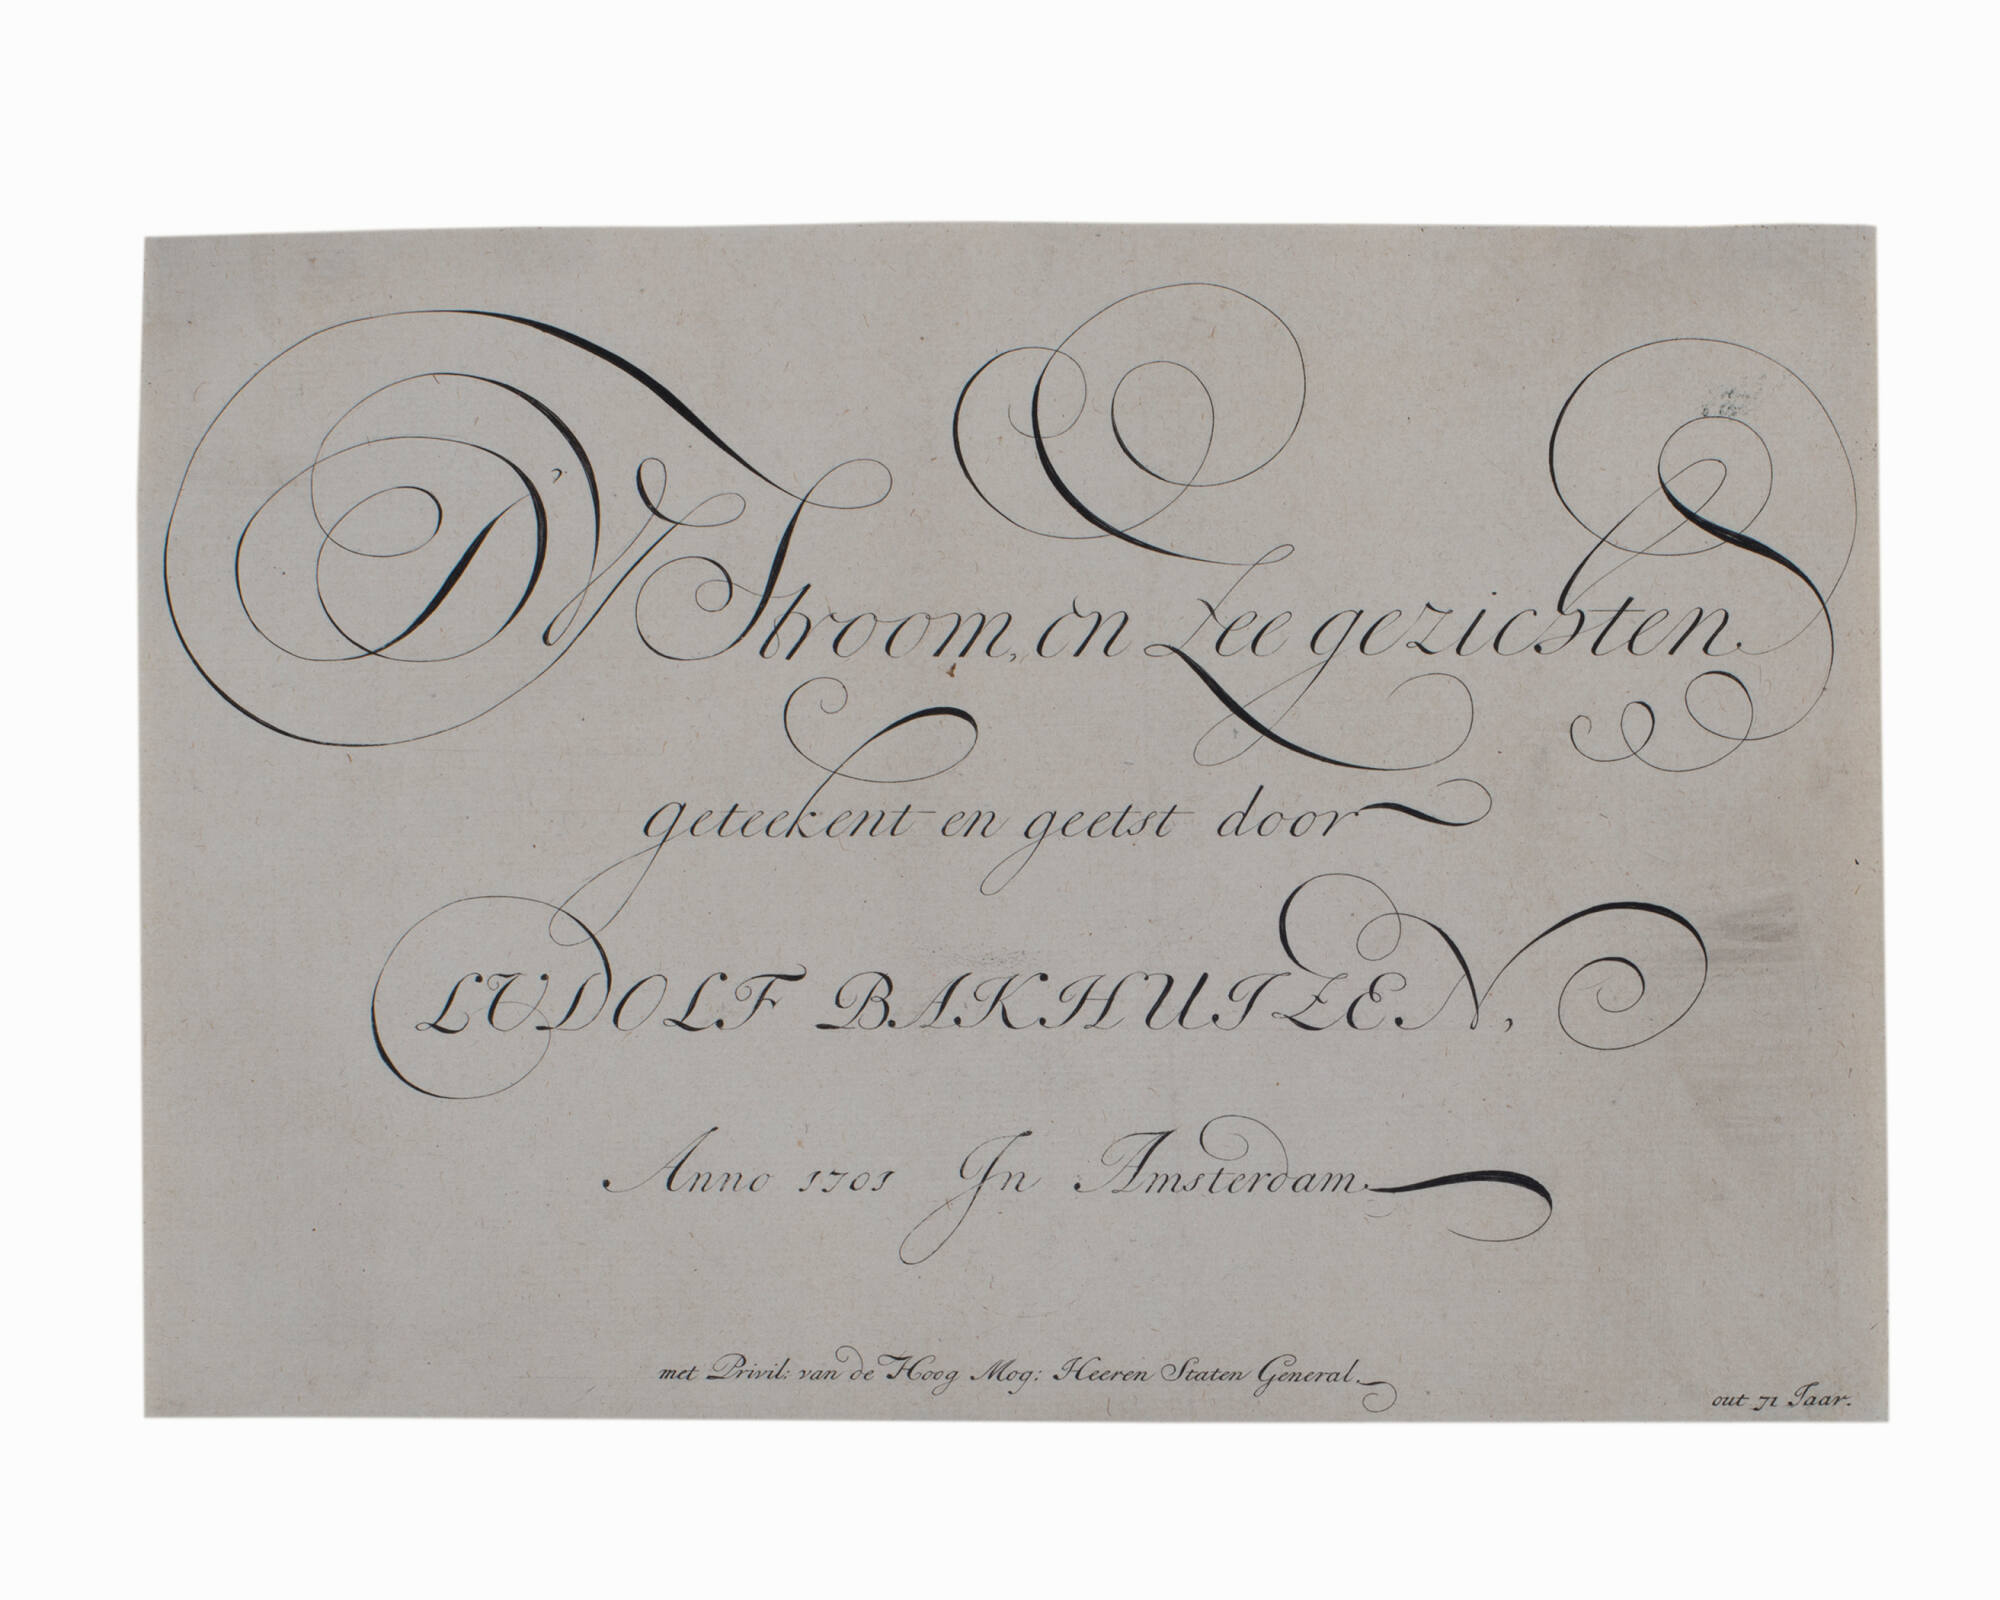 D'Y Stroom, en Zee gezichten.
geteekent en geetst door
LUDOLF BAKHUIZEN,
Anno 1701 In Amsterdam.
met Privil: van de Hoog Mog: Heeren Staten General.
out 71 Jaar.